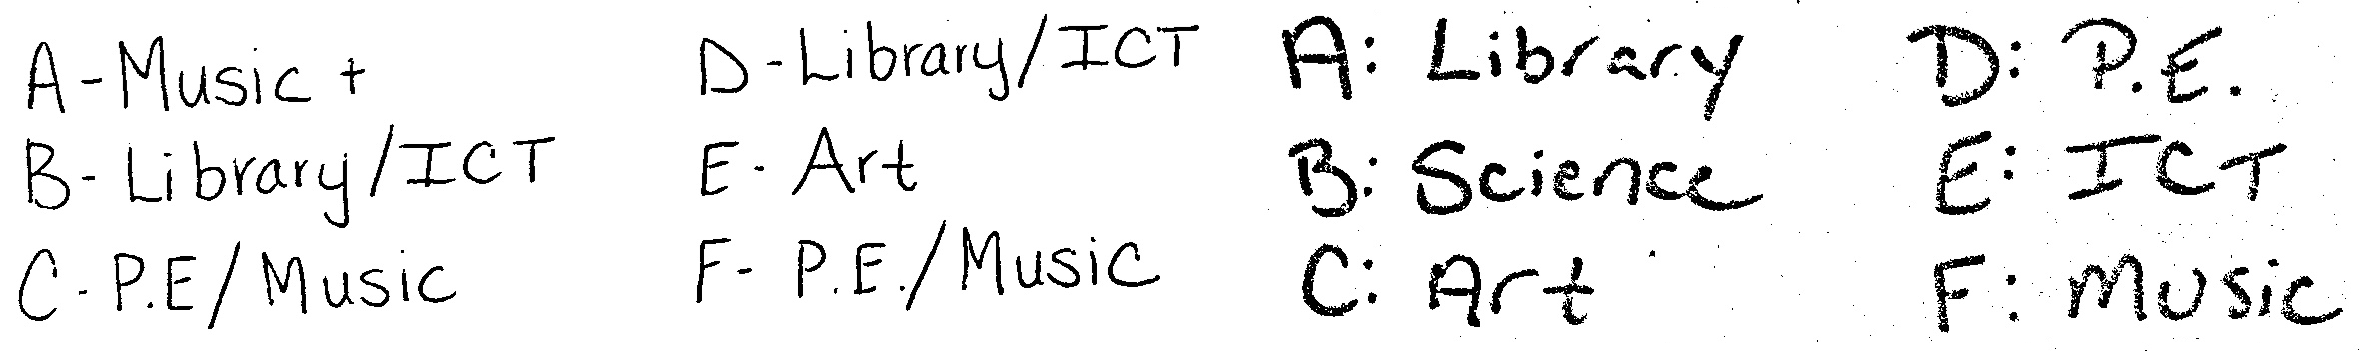 A - Music +
B - Library/ICT
C - P.E/Music
D - Library/ICT
E - Art
F - P.E./Music
A: Library
B: Science
C: Art
D: P.E.
E: ICT
F: Music